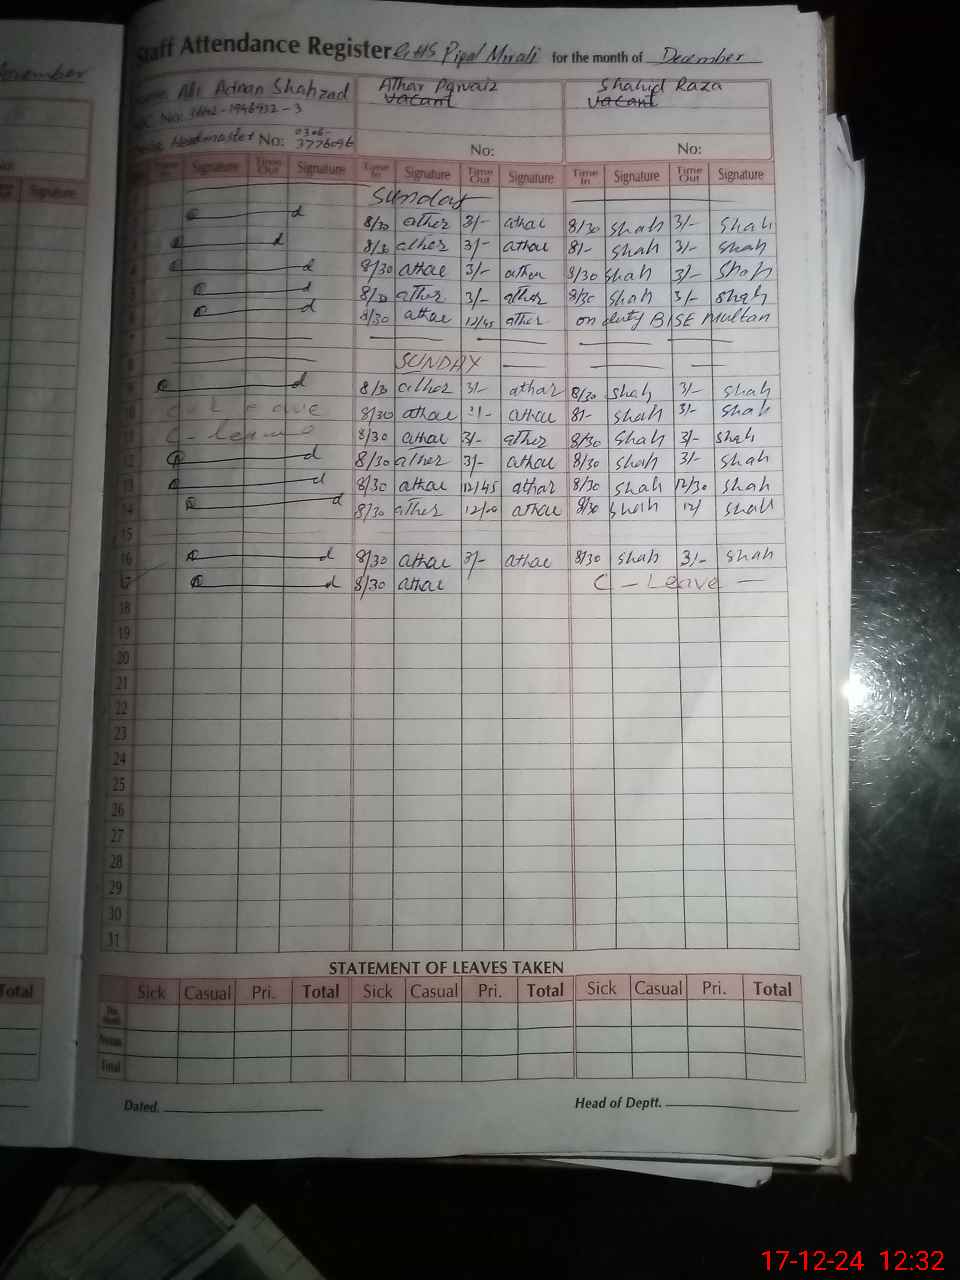 Staff Attendance Register GHS Pipal Mirali for the month of December
Ali Adnan Shahzad Athar Parvaiz Shahid Raza
Vacant Vacant
No:
Headmaster No: 0306-
3776096 No: No:
Signature Time Out Signature Time In Signature Time Out Signature Time In Signature Time Out Signature
Sunday
d 8/30 ather 3/- athar 8/30 shah 3/- shah
d 8/30 ather 3/- athar 8/- shah 3/- shah
d 8/30 athar 3/- athar 8/30 shah 3/- shah
d 8/30 ather 3/- ather 8/30 shah 3/- shah
d 8/30 athar 12/45 ather on duty BISE Multan
SUNDAY
d 8/30 ather 3/- athar 8/30 shah 3/- shah
10 8/30 athar 3/- athar 8/- shah 3/- shah
11 C - leave 8/30 athar 3/- ather 8/30 shah 3/- shah
12 d 8/30 ather 3/- athar 8/30 shah 3/- shah
13 d 8/30 athar 12/45 athar 8/30 shah 12/30 shah
14 d 8/30 ather athar 8/30 shah 12/ shah
15
16 d 8/30 athar 3/- athar 8/30 shah 3/- shah
17 d 8/30 athar C - Leave -
18
19
20
21
22
23
24
25
26
27
28
29
30
31
STATEMENT OF LEAVES TAKEN
Total Sick Casual Pri. Total Sick Casual Pri. Total Sick Casual Pri. Total
Total
Dated. Head of Deptt.
17-12-24 12:32